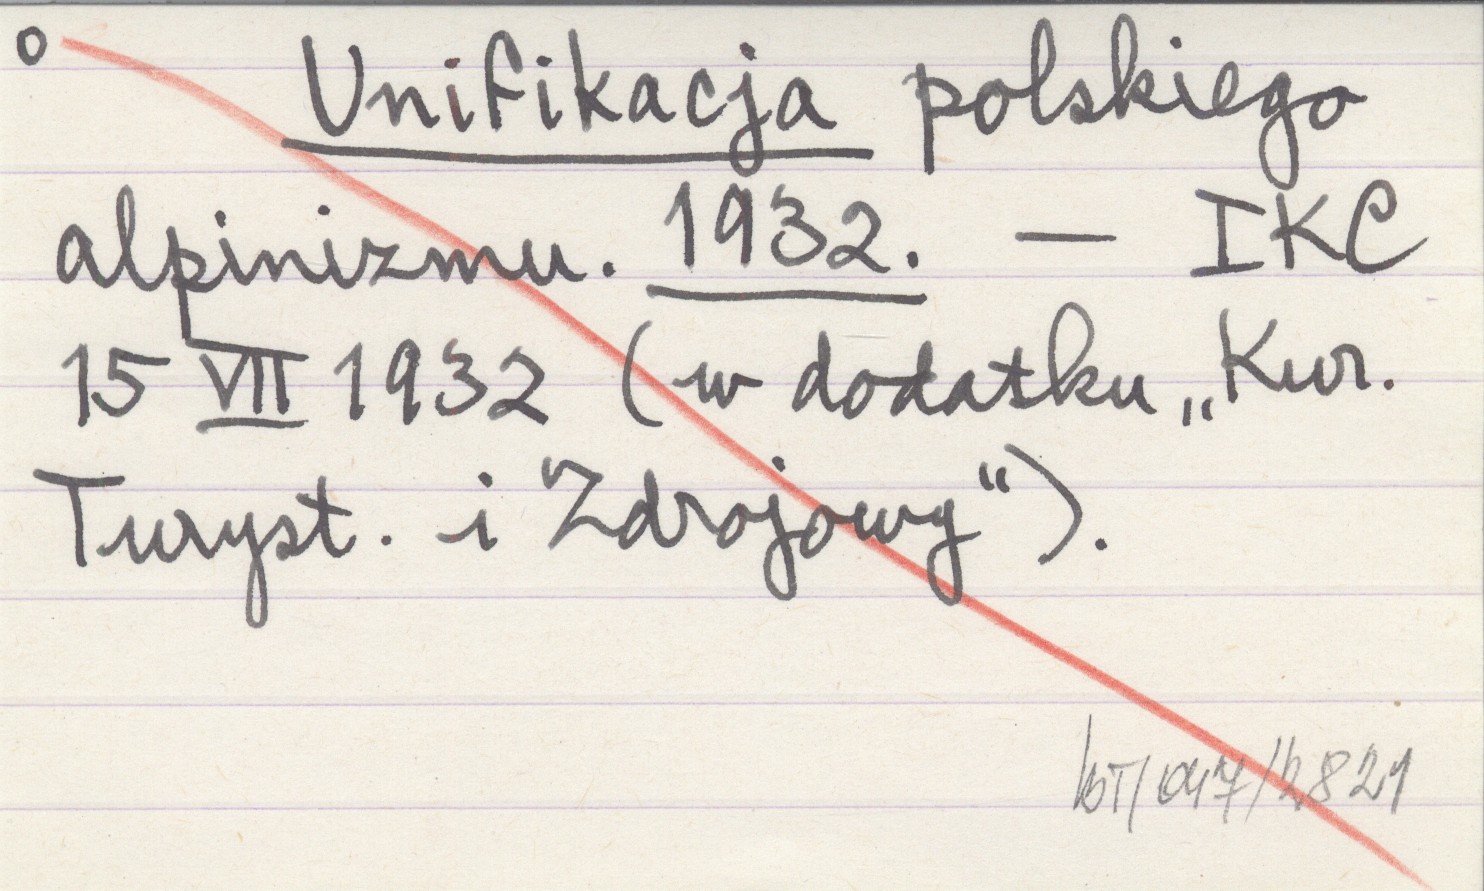 o Unifikacja polskiego
alpinizmu. 1932. — IKC
15 VII 1932 (w dodatku „Kur.
Turyst. i Zdrojowy“).